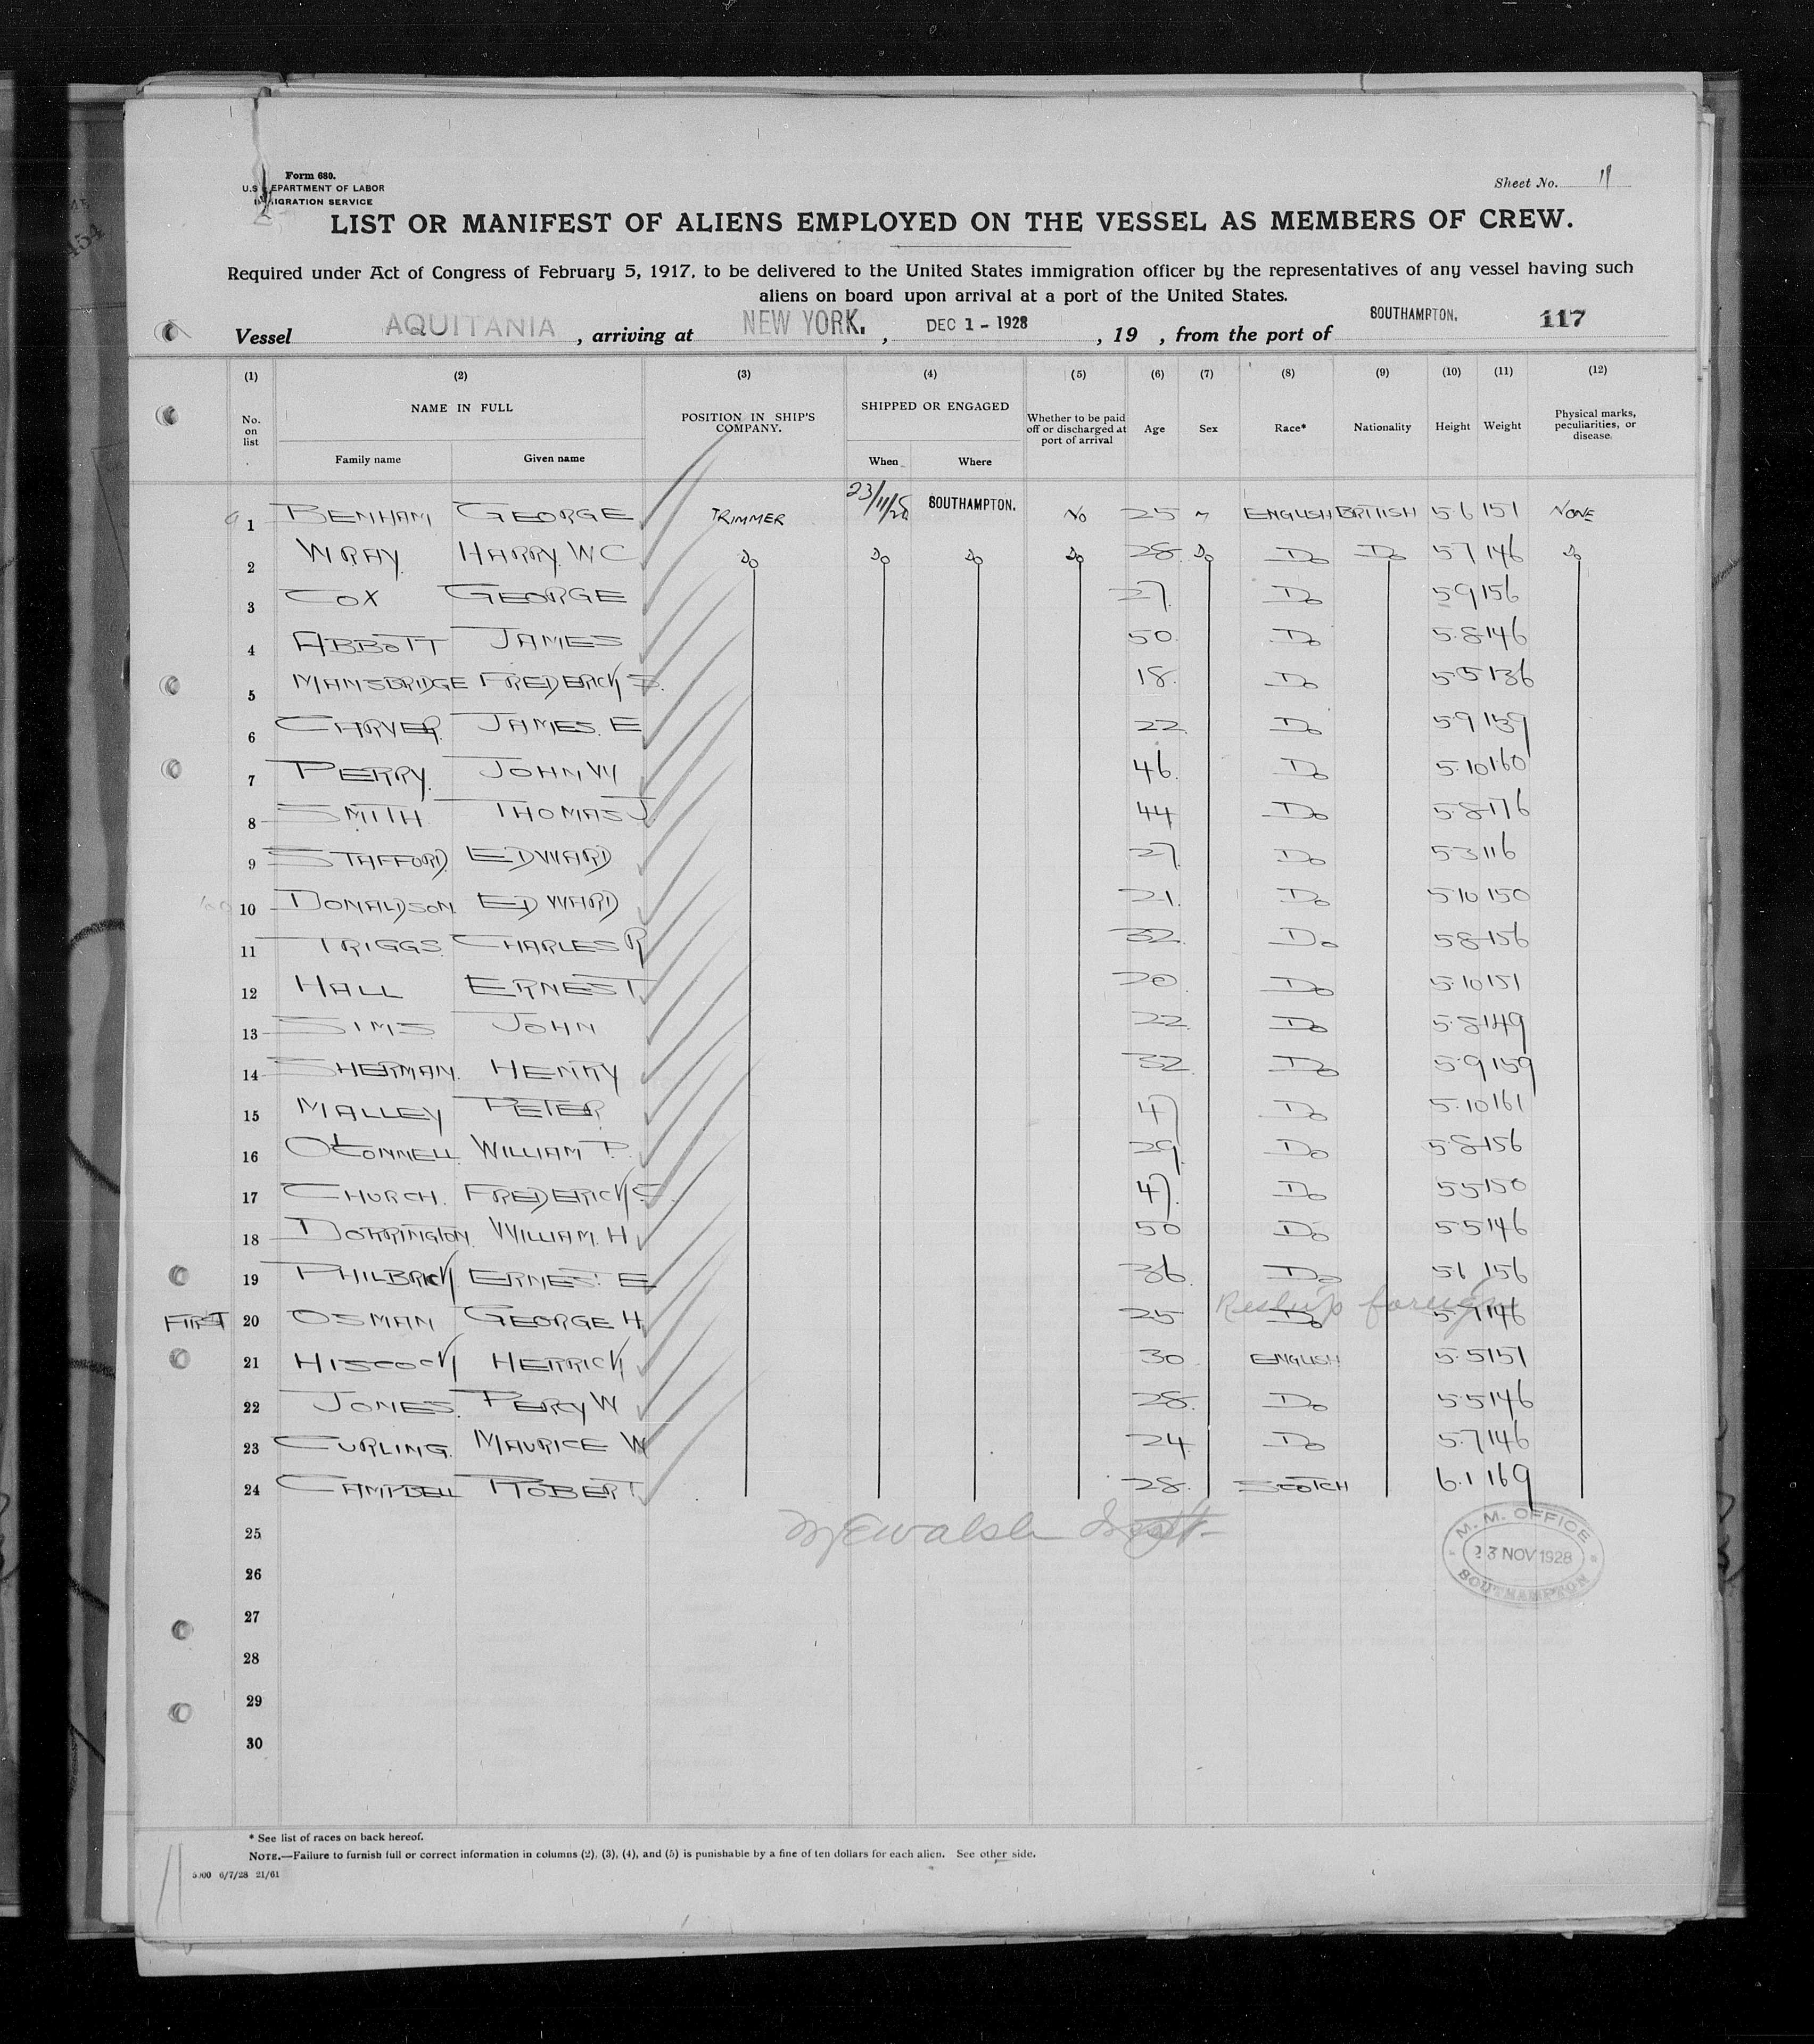 Form 680.
U.S. DEPARTMENT OF LABOR
IMMIGRATION SERVICE
Sheet No. 11
LIST OR MANIFEST OF ALIENS EMPLOYED ON THE VESSEL AS MEMBERS OF CREW.
Required under Act of Congress of February 5, 1917, to be delivered to the United States immigration officer by the representatives of any vessel having such
aliens on board upon arrival at a port of the United States.
Vessel AQUITANIA, arriving at NEW YORK., DEC 1 - 1928, 19 , from the port of SOUTHAMPTON. 117
(1) (2) (3) (4) (5) (6) (7) (8) (9) (10) (11) (12)
No. on list NAME IN FULL POSITION IN SHIP'S COMPANY. SHIPPED OR ENGAGED Whether to be paid off or discharged at port of arrival Age Sex Race* Nationality Height Weight Physical marks, peculiarities, or disease.
Family name Given name When Where
1 BENHAM GEORGE TRIMMER 23/11/28 SOUTHAMPTON. No 25 M ENGLISH BRITISH 5.6 151 NONE
2 WRAY HARRY W C Do Do Do Do 28 Do Do Do 5.7 146 Do
3 COX GEORGE 27 Do 5.9 156
4 ABBOTT JAMES 50 Do 5.8 146
5 MANSBRIDGE FREDERICK S. 18 Do 5.5 136
6 CARVER JAMES. E 22 Do 5.9 159
7 PERRY JOHN W 46 Do 5.10 160
8 SMITH THOMAS J 44 Do 5.8 176
9 STAFFORD EDWARD 27 Do 5.3 116
10 DONALDSON EDWARD 21 Do 5.10 150
11 TRIGGS CHARLES R 32 Do 5.8 156
12 HALL ERNEST 20 Do 5.10 151
13 SIMS JOHN 22 Do 5.8 149
14 SHERMAN HENRY 32 Do 5.9 159
15 MALLEY PETER 47 Do 5.10 161
16 O'CONNELL WILLIAM P. 29 Do 5.8 156
17 CHURCH FREDERICK C 47 Do 5.5 150
18 DORRINGTON WILLIAM. H 50 Do 5.5 146
19 PHILBRICK ERNEST E 36 Do 5.1 156
Reship foreign
FIRST 20 OSMAN GEORGE H 25 Do 5.7 146
21 HISCOCK HERRICK 30 ENGLISH 5.5 151
22 JONES PERCY W 28 Do 5.5 146
23 CURLING MAURICE W 24 Do 5.7 146
24 CAMPBELL ROBERT 28 SCOTCH 6.1 169
25
26
27
28
29
30
M. M. OFFICE
23 NOV 1928
SOUTHAMPTON
* See list of races on back hereof.
NOTE.—Failure to furnish full or correct information in columns (2), (3), (4), and (5) is punishable by a fine of ten dollars for each alien. See other side.
6/7/28 21/61